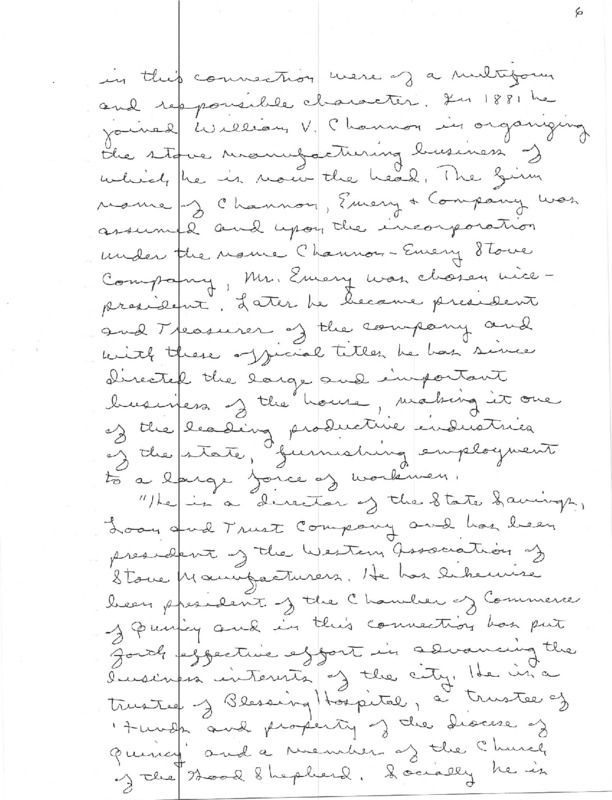 6
in this connection were of a multiform
and responsible character. In 1881 he
joined William V. Channon in organizing
the stove manufacturing business of
which he is now the head. The firm
name of Channon, Emery & Company was
assumed and upon the incorporation
under the name Channon-Emery Stove
Company, Mr. Emery was chosen vice-
president. Later he became president
and Treasurer of the company and
with these official titles he has since
directed the large and important
business of the house, making it one
of the leading productive industries
of the state, furnishing employment
to a large force of workmen.
"He is a director of the State Savings,
Loan and Trust Company and has been
president of the Western Association of
Stove Manufacturers. He has likewise
been president of the Chamber of Commerce
of Quincy and in this connection has put
forth effective effort in advancing the
business interests of the city. He is a
trustee of Blessing Hospital, a trustee of
'Funds and property of the diocese of
Quincy' and a member of the Church
of the Good Shepherd. Socially he is